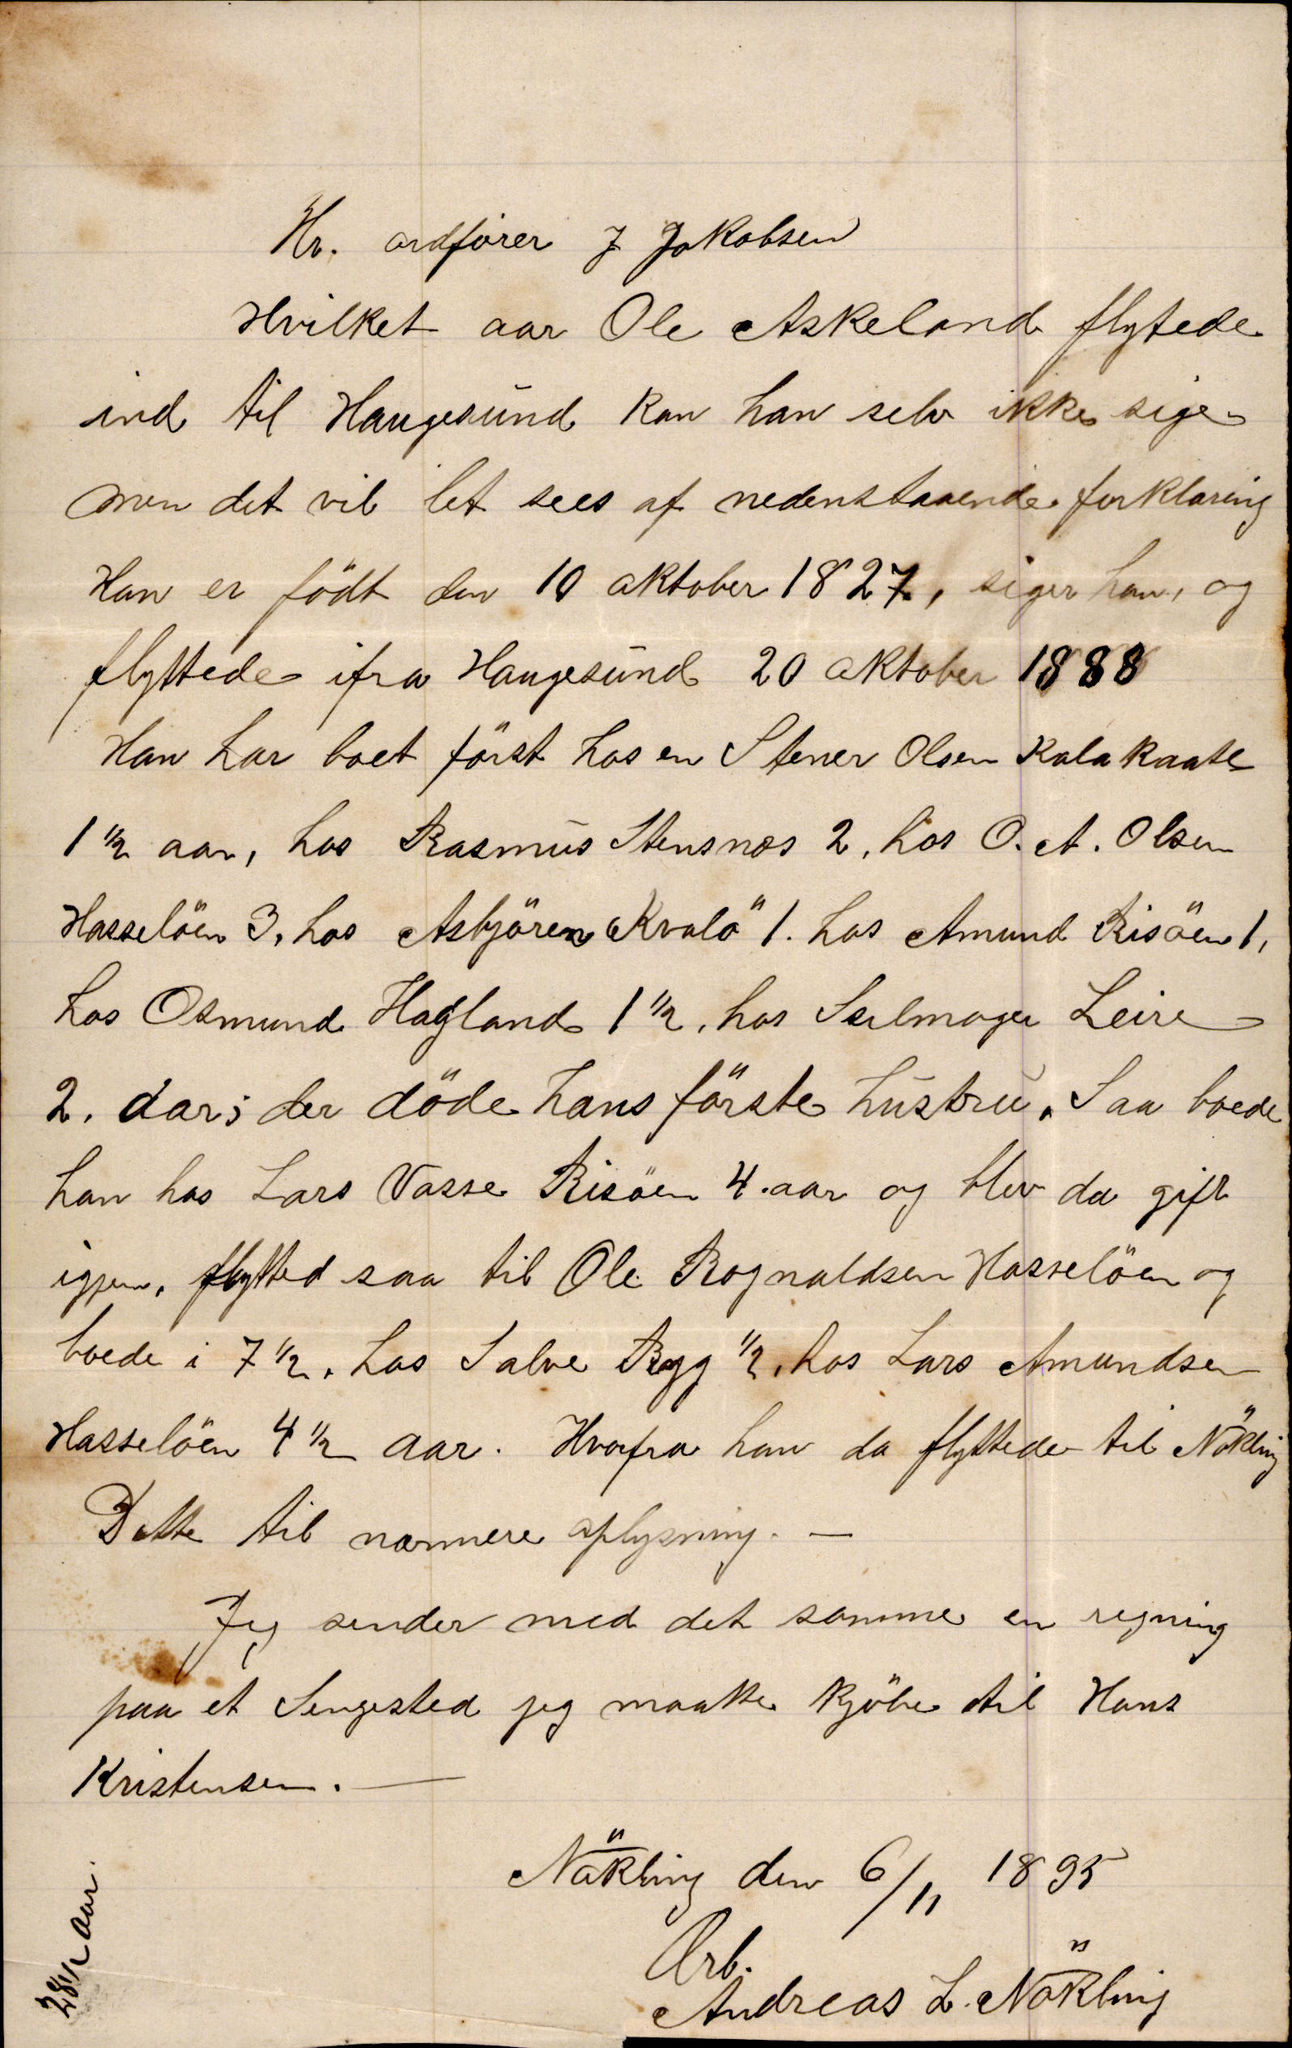 Hr. ordförer J Jakobsen
Hvilket aar Ole Askeland flytede
ind til Haugesund kan han selv ikke sige
men det vil let sees af nedenstaaende forklaring
Han er födt den 10 oktober 1827, siger han, og
flyttede ifra Haugesund 20 oktober 1888
Han har boet först hos en Stener Olsen Kalakaate
1 1/2 aar, hos Rasmus Stensnes 2, hos O. A. Olsen
Hasselöen 3, hos Asbjören Kvalö 1. hos Amund Risöen 1,
hos Osmund Hagland 1 1/2, hos Seilmager Leire
2. dar; der döde hans förste hustru. Saa boede
han hos Lars Vasse Risöen 4. aar og blev da gift
igjen, flytted saa til Ole Rognaldsen Hasselöen og
boede i 7 1/2, hos Salve Rygg 1/2, hos Lars Amundsen
Hasselöen 4 1/2 aar. Hvorfra han da flyttede til Nökling
Dette til nærmere oplysning. —
Jeg sender med det samme en regning
paa et Sengested jeg maatte kjöbe til Hans
Kristensen. —
Nökling den 6/11 1895
Ærb.
Andreas L. Nökling
28 1/2 aar.